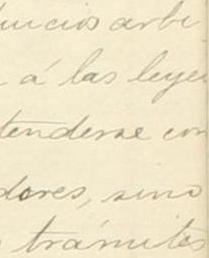 juicios arbi
á las leye
tenderse con
dores, sino
trámites